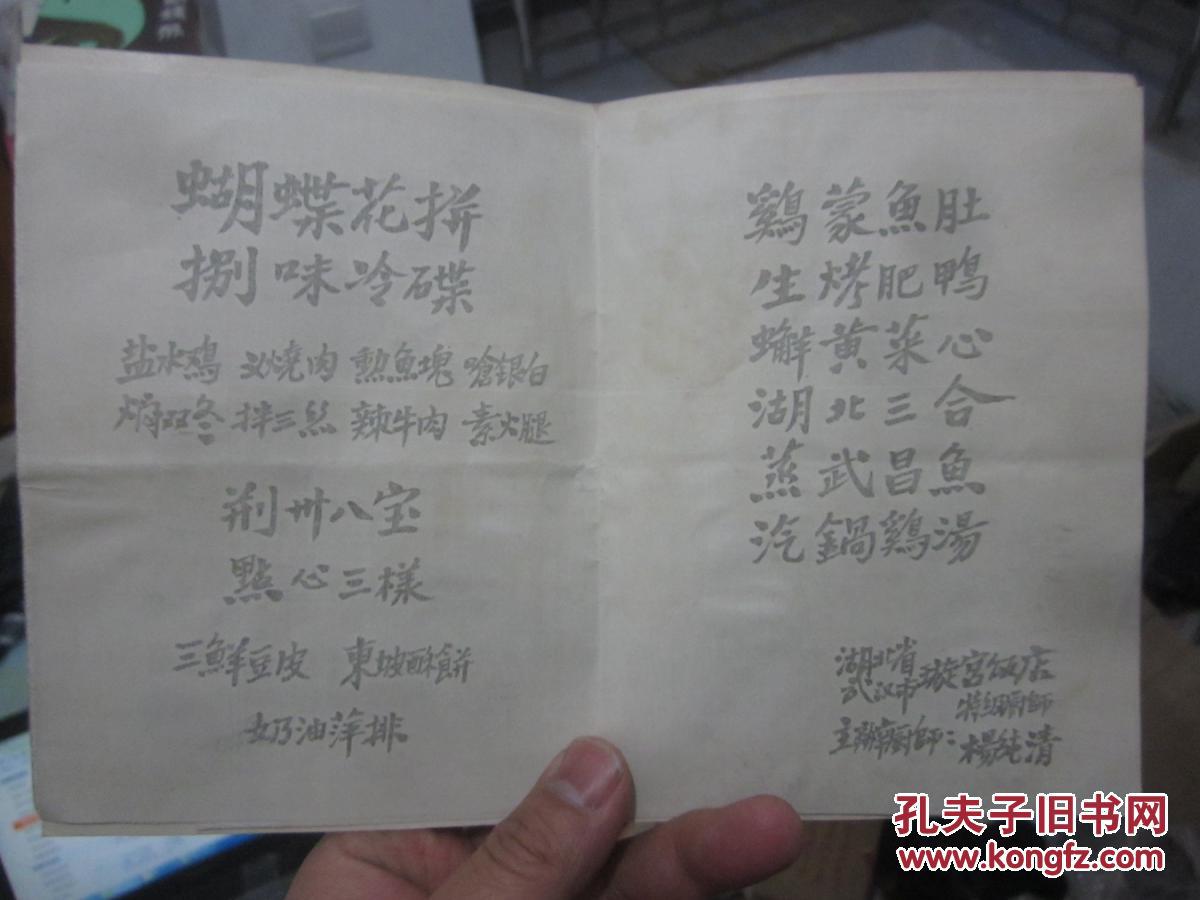 蝴蝶花拼
捌味冷碟
盐水鸡 汊燒肉 勲魚塊 嗆銀白
焖双冬 拌三絲 辣牛肉 素火腿
荆州八宝
點心三樣
三鮮豆皮 東坡酥餅
奶油萍排
鷄蒙魚肚
生烤肥鴨
蠏黄菜心
湖北三合
蒸武昌魚
汽鍋鷄湯
湖北省
武汉市璇宮饭店
特级厨師
主辦厨師：楊純清
孔夫子旧书网
www.kongfz.com